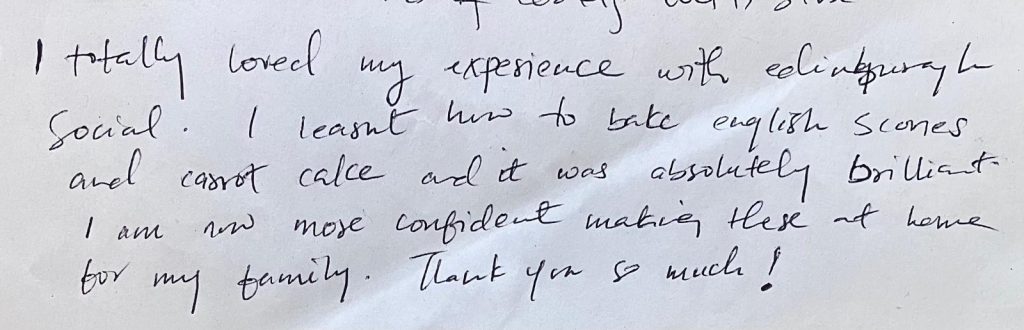 I totally loved my experience with edinburgh
Social. I learnt how to bake english scones
and carrot cake and it was absolutely brilliant
I am now more confident making these at home
for my family. Thank you so much!